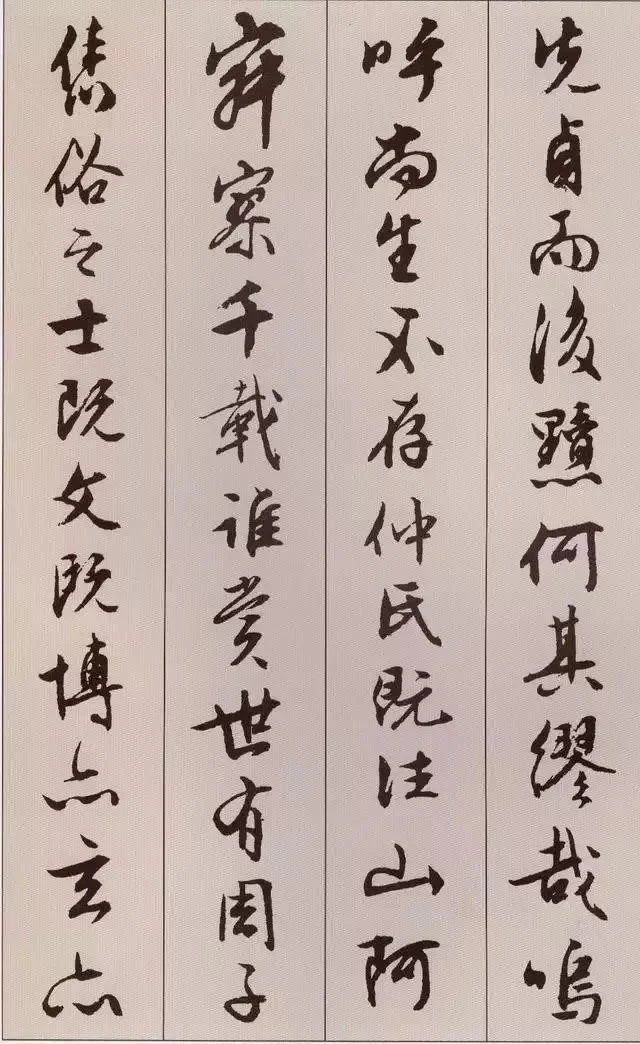 先貞而後黷何其繆哉嗚
呼尚生不存仲氏既往山阿
寂寥千載誰賞世有周子
儁俗之士既文既博亦玄亦